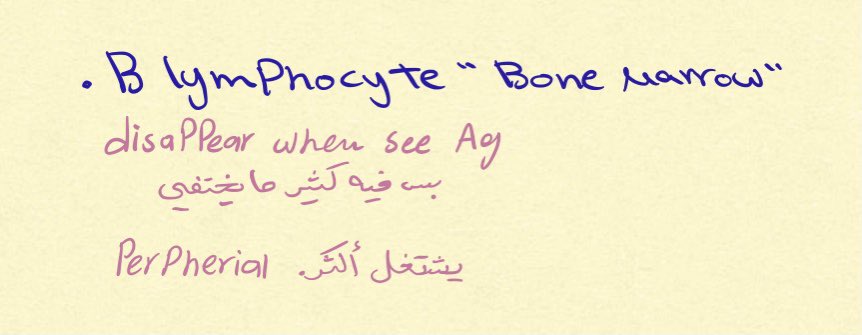 . B lymphocyte " Bone Marrow "
disappear when see Ag
بس فيه كثير ما يختفي
Perpherial يشتغل أكثر.